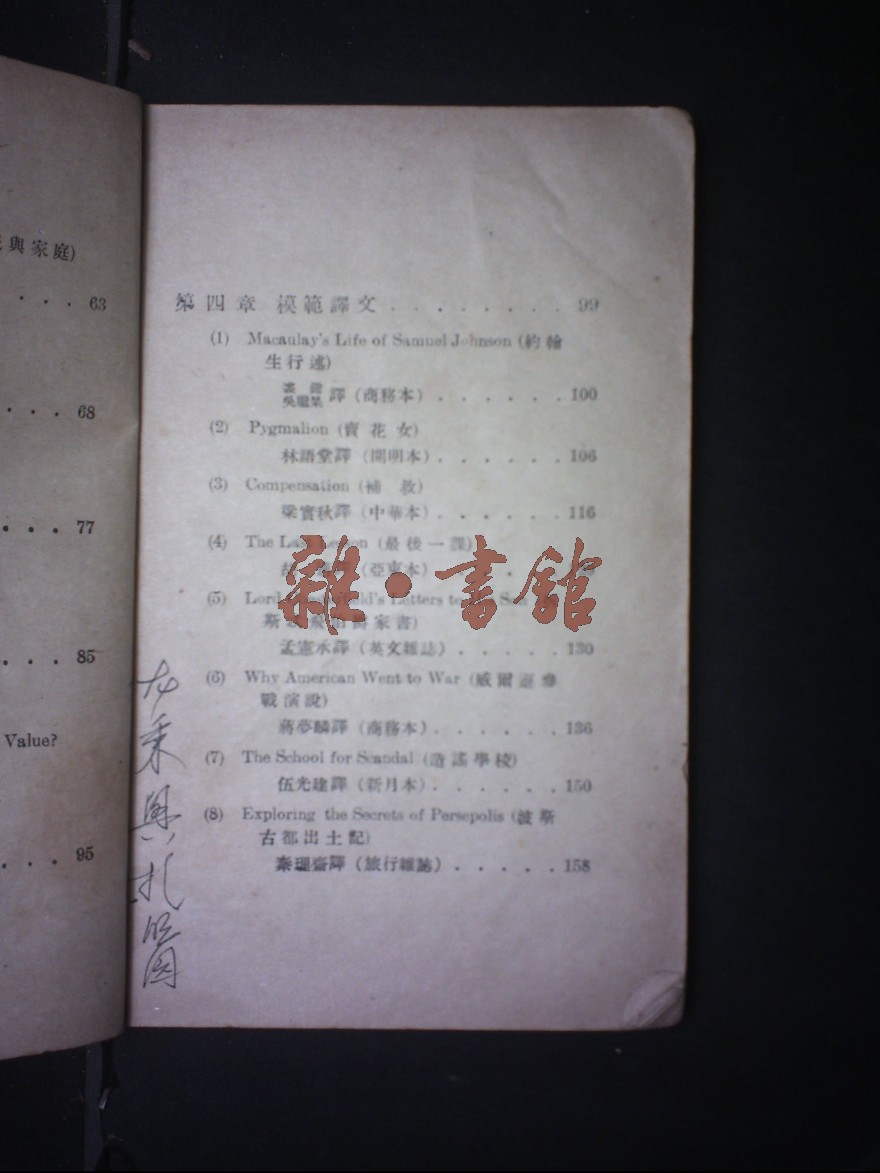 與家庭)
. . . 63
. . . . 68
. . . . 77
. . . . 85
Value?
. . . . 95
第四章 模範譯文 . . . . . . . . 99
(1) Macaulay's Life of Samuel Johnson (約翰
生行述)
譯 (商務本) . . . . . . 100
(2) Pygmalion (賣花女)
林語堂譯 (開明本) . . . . . . 106
(3) Compensation (補救)
梁實秋譯 (中華本) . . . . . . 116
(4) The Last Lesson (最後一課)
(亞東本)
(5) Lord Letters to Son
斯 家書)
孟憲承譯 (英文雜誌) . . . . . 130
(6) Why American Went to War (威爾遜參
戰演說)
蔣夢麟譯 (商務本) . . . . . . 136
(7) The School for Scandal (造謠學校)
伍光建譯 (新月本) . . . . . . 150
(8) Exploring the Secrets of Persepolis (波斯
古都出土記)
秦理齋譯 (旅行雜誌) . . . . . 158
雜·書館